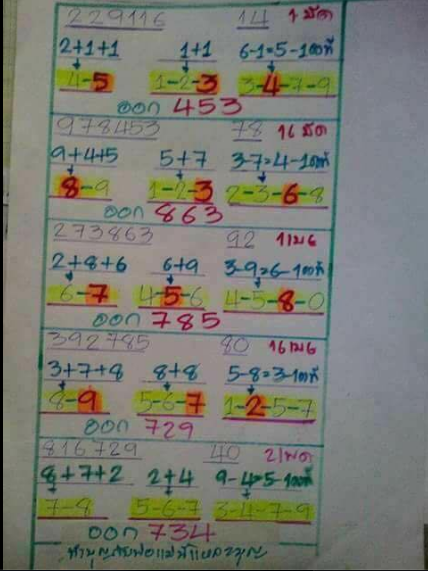 229116 14 1 มีค
2+1+1 1+1 6-1=5-1
4-5 1-2-3 3-4-7-9
ออก 453
978453 78 16 มีค
9+4+5 5+7 3-7=4-1
8-9 1-2-3 2-3-6-8
ออก 863
273863 92 1 เมษ
2+8+6 6+9 3-9=6-1
6-7 4-5-6 4-5-8-0
ออก 785
392785 80 16 เมษ
3+7+8 8+8 5-8=3-1
8-9 5-6-7 1-2-5-7
ออก 729
816729 40 2
8+7+2 2+4 9-4=5-1
7-8 5-6-7 3-4-7-9
ออก 734